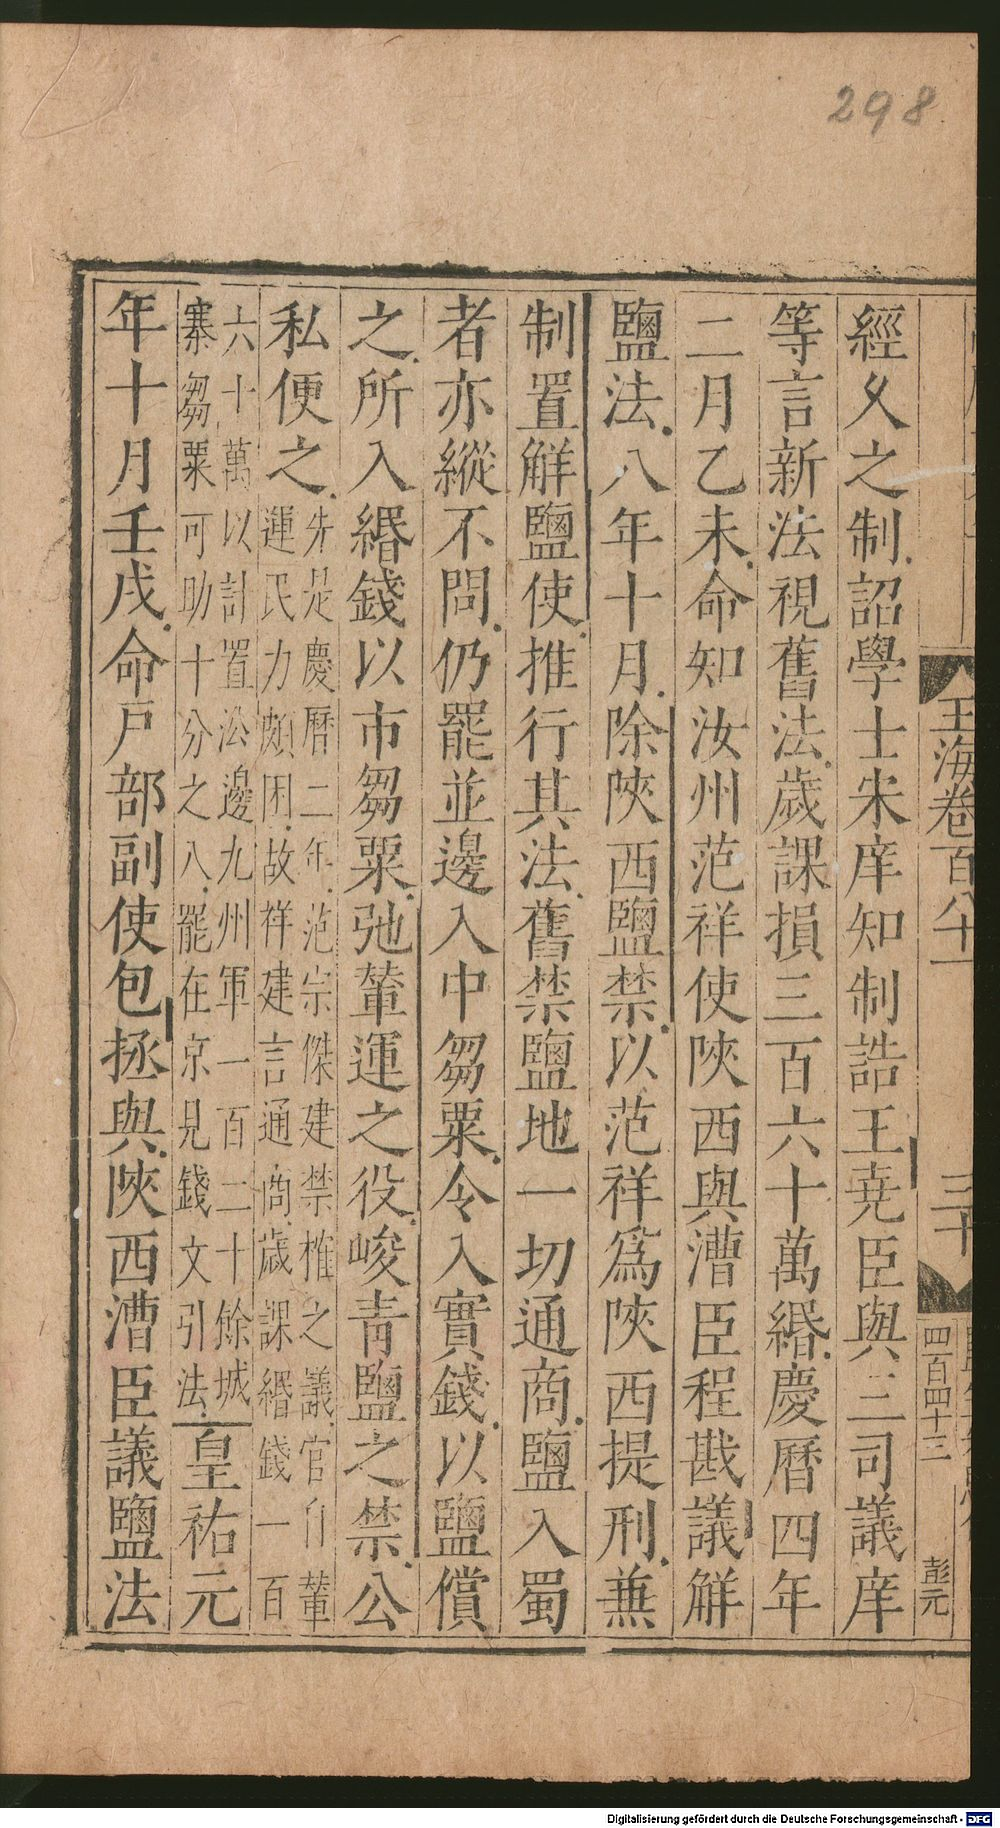 298
玉海卷百八十一
三十
四百四十三
彭元
經久之制詔學士宋庠知制誥王堯臣與三司議庠
等言新法視舊法歲課損三百六十萬緡慶曆四年
二月乙未命知汝州范祥使陝西與漕臣程戡議觧
鹽法八年十月除陝西鹽禁以范祥爲陝西提刑兼
制置觧鹽使推行其法舊禁鹽地一切通商鹽入蜀
者亦縱不問仍罷並邊入中芻粟令入實錢以鹽償
之所入緡錢以市芻粟弛輦運之役峻青鹽之禁公
私便之
先是慶曆二年范宗傑建禁榷之議官自輦
運民力頗困故祥建言通商歲課緡錢一百
六十萬以計置㳂邊九州軍一百二十餘城
寨芻粟可助十分之八罷在京見錢文引法
皇祐元
年十月壬戌命戸部副使包拯與陝西漕臣議鹽法
Digitalisierung gefördert durch die Deutsche Forschungsgemeinschaft - DFG